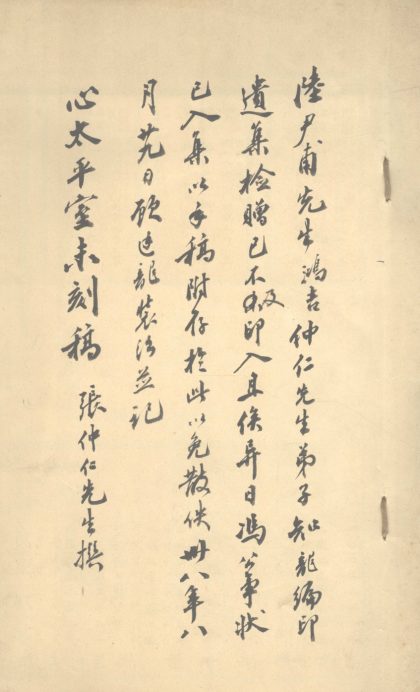 陸尹甫先生鴻吉仲仁先生弟子知龍編印
遺集檢贈已不及印入且俟异日馮公事狀
已入集以手稿附存於此以免散佚卅八年八
月廿九日顾廷龍裝治並記
心太平室未刻稿 張仲仁先生撰